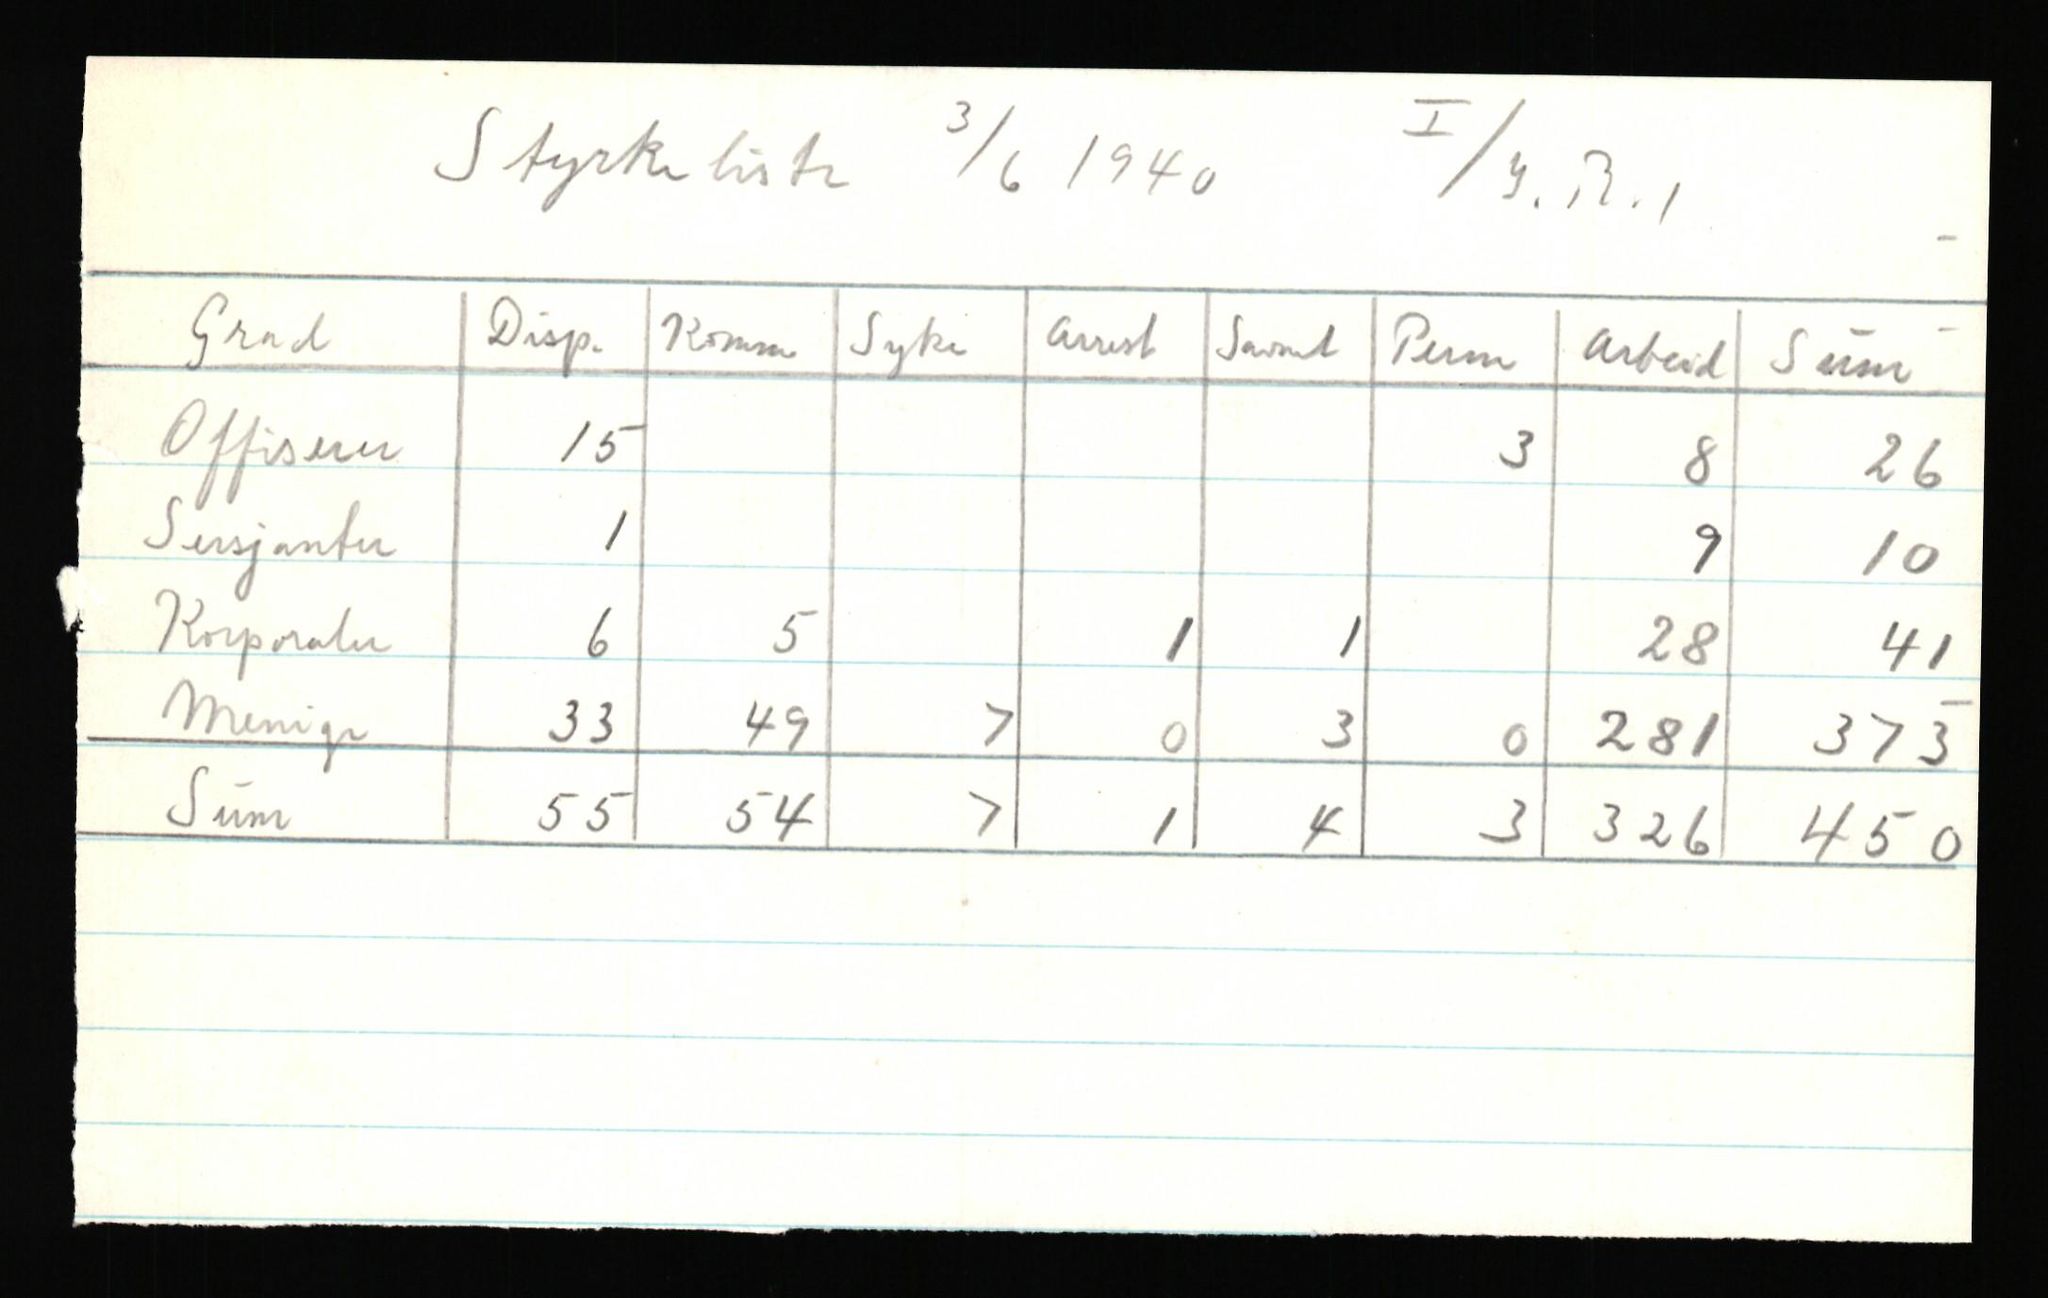 Styrkeliste 3/6 1940 I/I.R.1
Grad Disp. Komm Syke Arrest Savnet Perm Arbeid Sum
Offiserer 15 3 8 26
Sersjanter 1 9 10
Korporaler 6 5 1 1 28 41
Menige 33 49 7 0 3 0 281 373
Sum 55 54 7 1 4 3 326 450